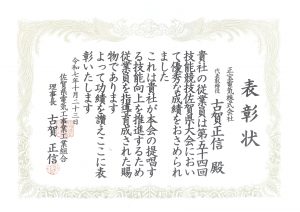 表彰状
正宝電気株式会社
代表取締役
古賀正信 殿
貴社の従業員は第五十四回
技能競技佐賀県大会におい
て優秀な成績をおさめられ
ました
これは貴社が本会の提唱す
る技能向上を推進するため
従業員を指導育成された賜
物であります
よって功績を讃えここに表
彰いたします
令和七年十月二十三日
佐賀県電気工事業工業組合
理事長 古賀正信